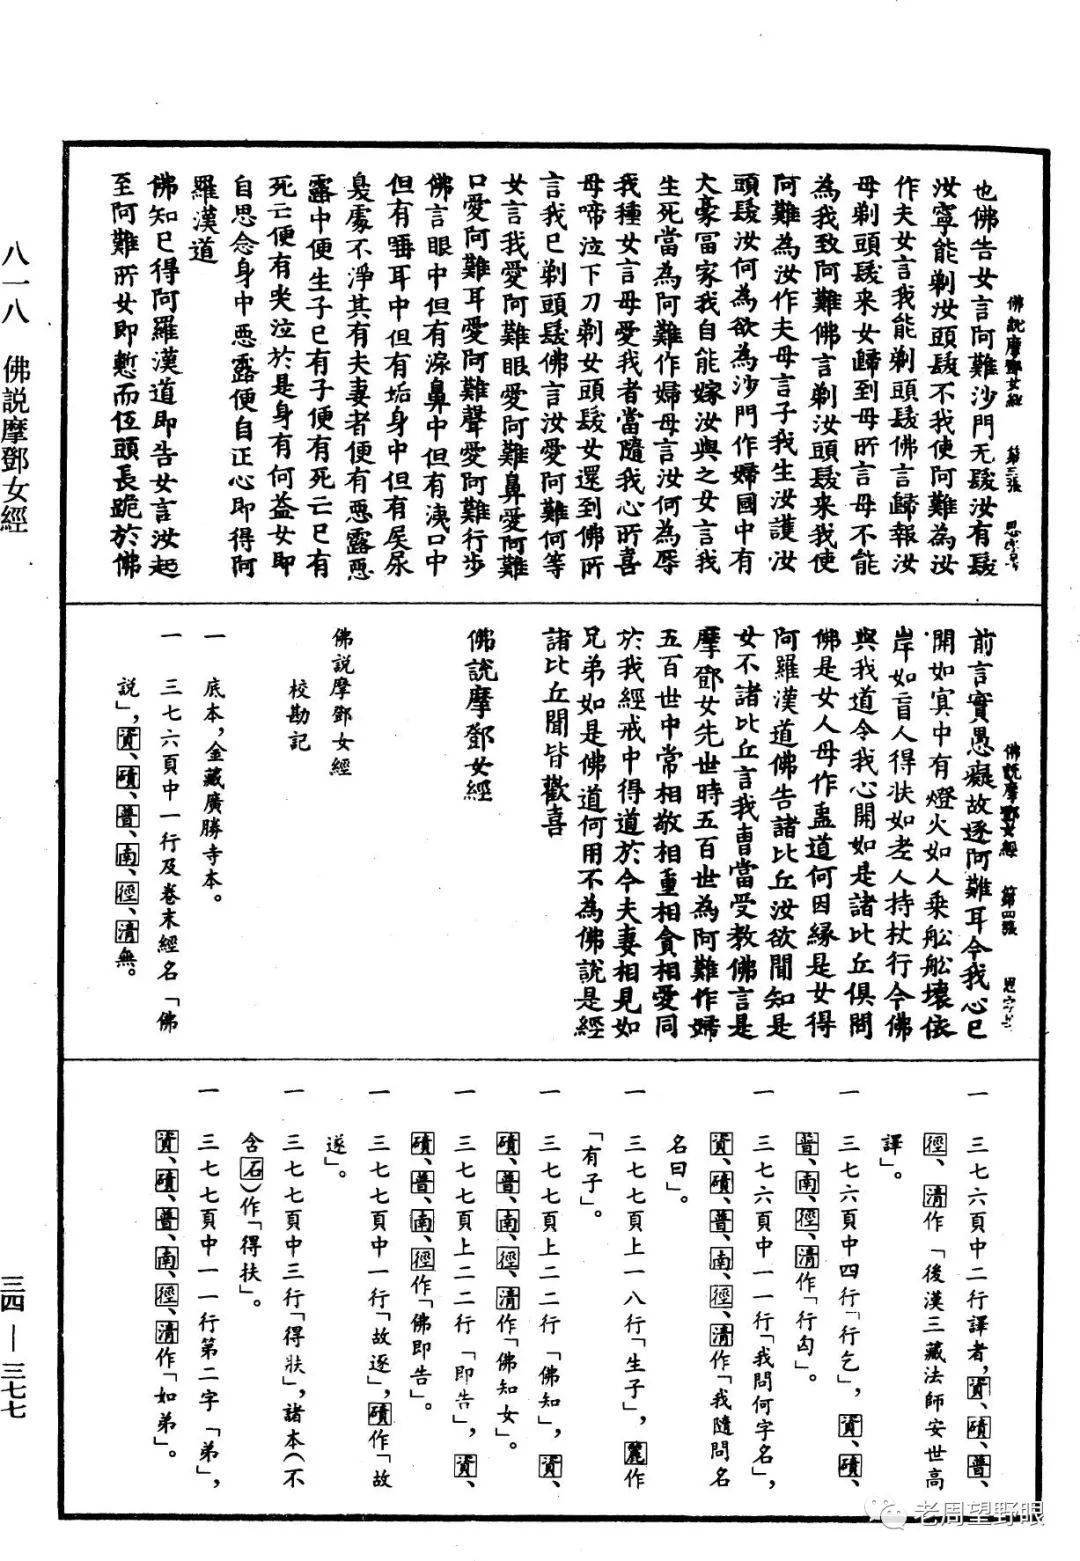 佛説摩鄧女經　第三張　思字号
也佛告女言阿難沙門无髮汝有髮
汝寧能剃汝頭髮不我使阿難為汝
作夫女言我能剃頭髮佛言歸報汝
母剃頭髮来女歸到母所言母不能
為我致阿難佛言剃汝頭髮来我使
阿難為汝作夫母言子我生汝護汝
頭髮汝何為欲為沙門作婦國中有
大豪冨家我自能嫁汝與之女言我
生死當為阿難作婦母言汝何為辱
我種女言母愛我者當隨我心所喜
母啼泣下刀剃女頭髮女還到佛所
言我已剃頭髮佛言汝愛阿難何等
女言我愛阿難眼愛阿難鼻愛阿難
口愛阿難耳愛阿難聲愛阿難行步
佛言眼中但有淚鼻中但有洟口中
但有唾耳中但有垢身中但有屎尿
臭處不淨其有夫妻者便有惡露惡
露中便生子已有子便有死亡已有
死亡便有哭泣於是身有何益女即
自思念身中惡露便自正心即得阿
羅漢道
佛知已得阿羅漢道即告女言汝起
至阿難所女即慙而伍頭長跪於佛
八一八　佛説摩鄧女經
佛説摩鄧女經　第四張　思字号
前言實愚癡故逐阿難耳今我心已
開如冥中有燈火如人乗舩舩壞依
岸如盲人得扶如老人持杖行今佛
與我道令我心開如是諸比丘俱問
佛是女人母作蠱道何因緣是女得
阿羅漢道佛告諸比丘汝欲聞知是
女不諸比丘言我曹當受教佛言是
摩鄧女先世時五百世為阿難作婦
五百世中常相敬相重相貪相愛同
於我經戒中得道於今夫妻相見如
兄弟如是佛道何用不為佛説是經
諸比丘聞皆歡喜
佛説摩鄧女經
佛説摩鄧女經
校勘記
一　底本，金藏廣勝寺本。
一　三七六頁中一行及卷末經名「佛
説」，資、磧、普、南、徑、清無。
一　三七六頁中二行譯者，資、磧、普、
徑、清作「後漢三藏法師安世高
譯」。
一　三七六頁中四行「行乞」，資、磧、
普、南、徑、清作「行匃」。
一　三七六頁中一一行「我問何字名」，
資、磧、普、南、徑、清作「我隨問名
名曰」。
一　三七七頁上一八行「生子」，麗作
「有子」。
一　三七七頁上二二行「佛知」，資、
磧、普、南、徑、清作「佛知女」。
一　三七七頁上二二行「即告」，資、
磧、普、南、徑作「佛即告」。
一　三七七頁中一行「故逐」，磧作「故
遂」。
一　三七七頁中三行「得扶」，諸本（不
含石）作「得扶」。
一　三七七頁中一一行第二字「弟」，
資、磧、普、南、徑、清作「如弟」。
三四—三七七
老周望野眼